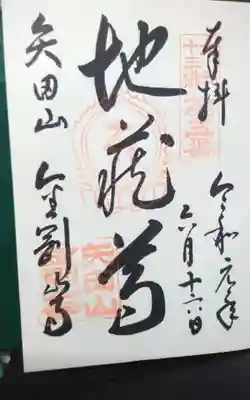 奉拝
令和元年
六月十六日
地蔵尊
矢田山
金剛山寺
矢田山